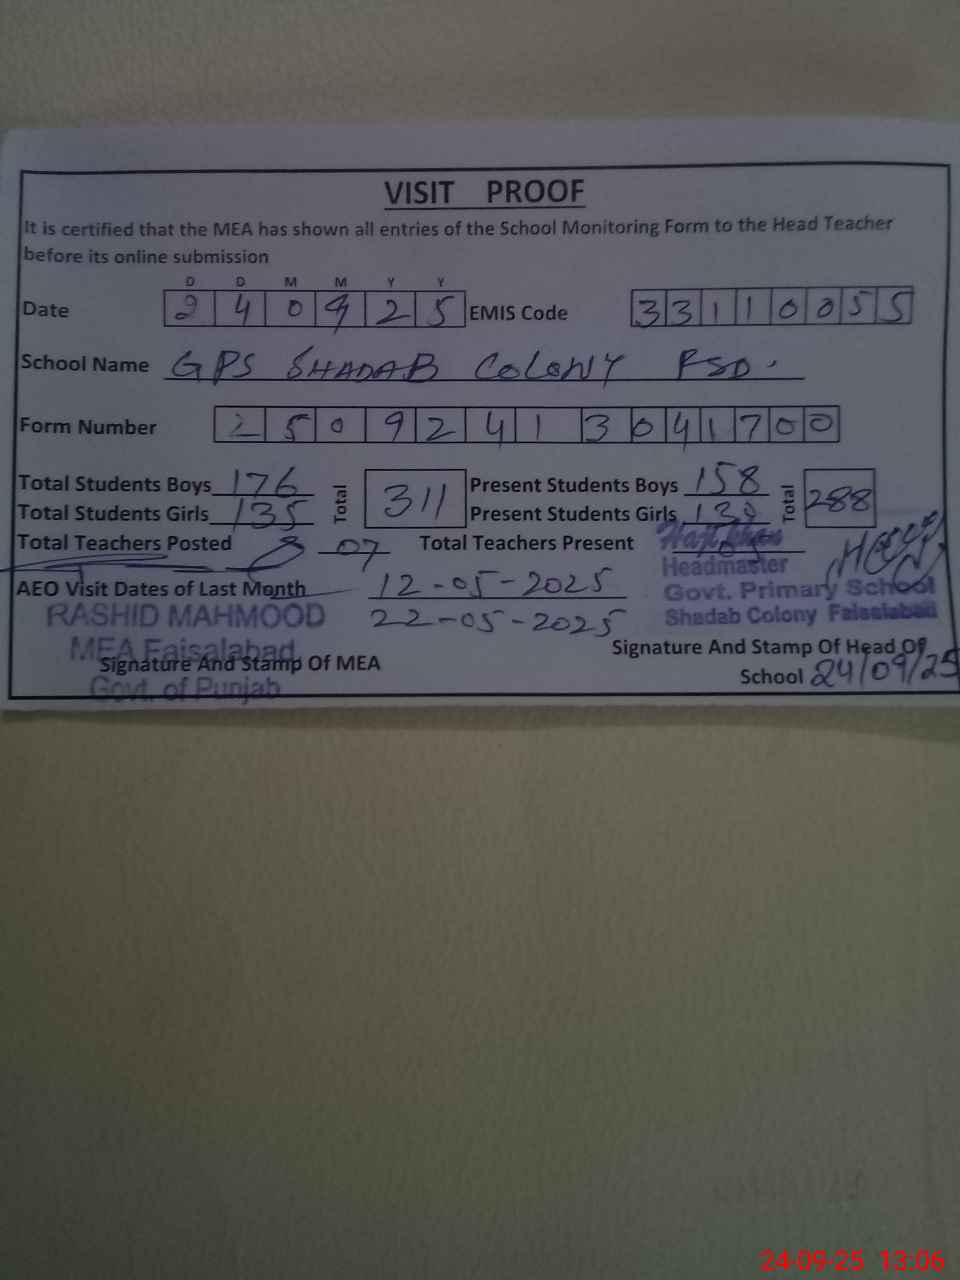 VISIT PROOF
It is certified that the MEA has shown all entries of the School Monitoring Form to the Head Teacher
before its online submission
D D M M Y Y
Date 24 09 25 EMIS Code 33110055
School Name GPS SHADAB COLONY FSD.
Form Number 25092413041700
Total Students Boys 176 Total 311 Present Students Boys 158 Total 288
Total Students Girls 135 Present Students Girls 130
Total Teachers Posted 07 Total Teachers Present
Headmaster
AEO Visit Dates of Last Month 12-05-2025 Govt. Primary School
RASHID MAHMOOD 22-05-2025 Shadab Colony Faisalabad
MEA Faisalabad
Signature And Stamp Of MEA Signature And Stamp Of Head Of
Govt. of Punjab School 24/09/25
24-09-25 13:06